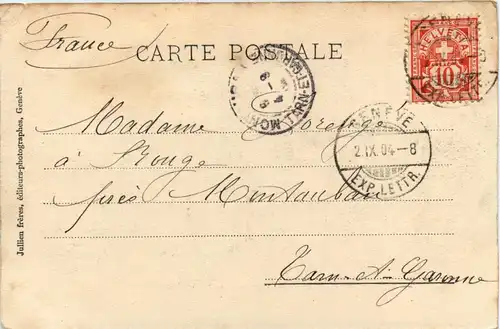 France
CARTE POSTALE
HELVETIA
10
GENÈVE
2.IX.04-8
EXP. LETTR.
Madame
à Rouge
près Montauban
Tarn-A-Garonne
Jullien frères, éditeurs-photographes, Genève